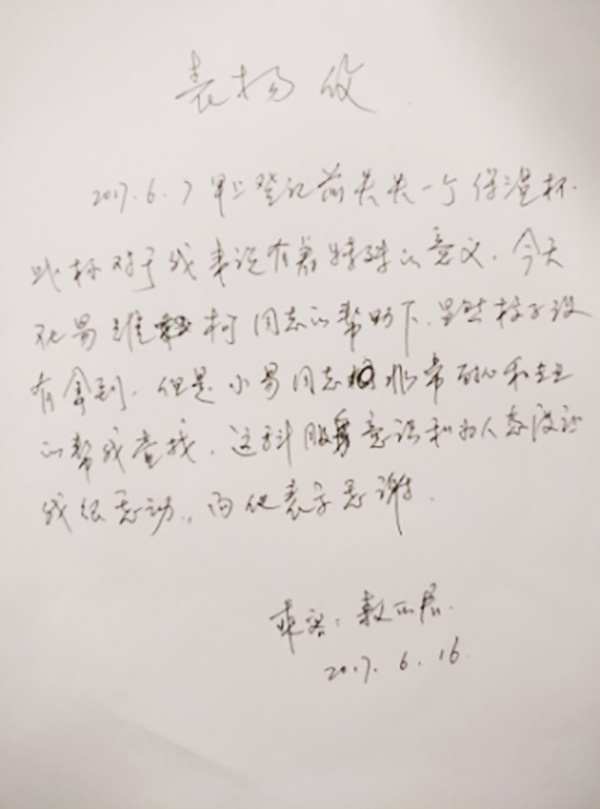 表扬信
2017.6.7早上登记前丢失一个保温杯.
此杯对于我来说有着特殊的意义.今天
在易维柯同志的帮助下.虽然杯子没
有拿到.但是小易同志非常耐心和主动
的帮我查找.这种服务意识和为人态度让
我很感动.,向他表示感谢.
乘客:
2017.6.16